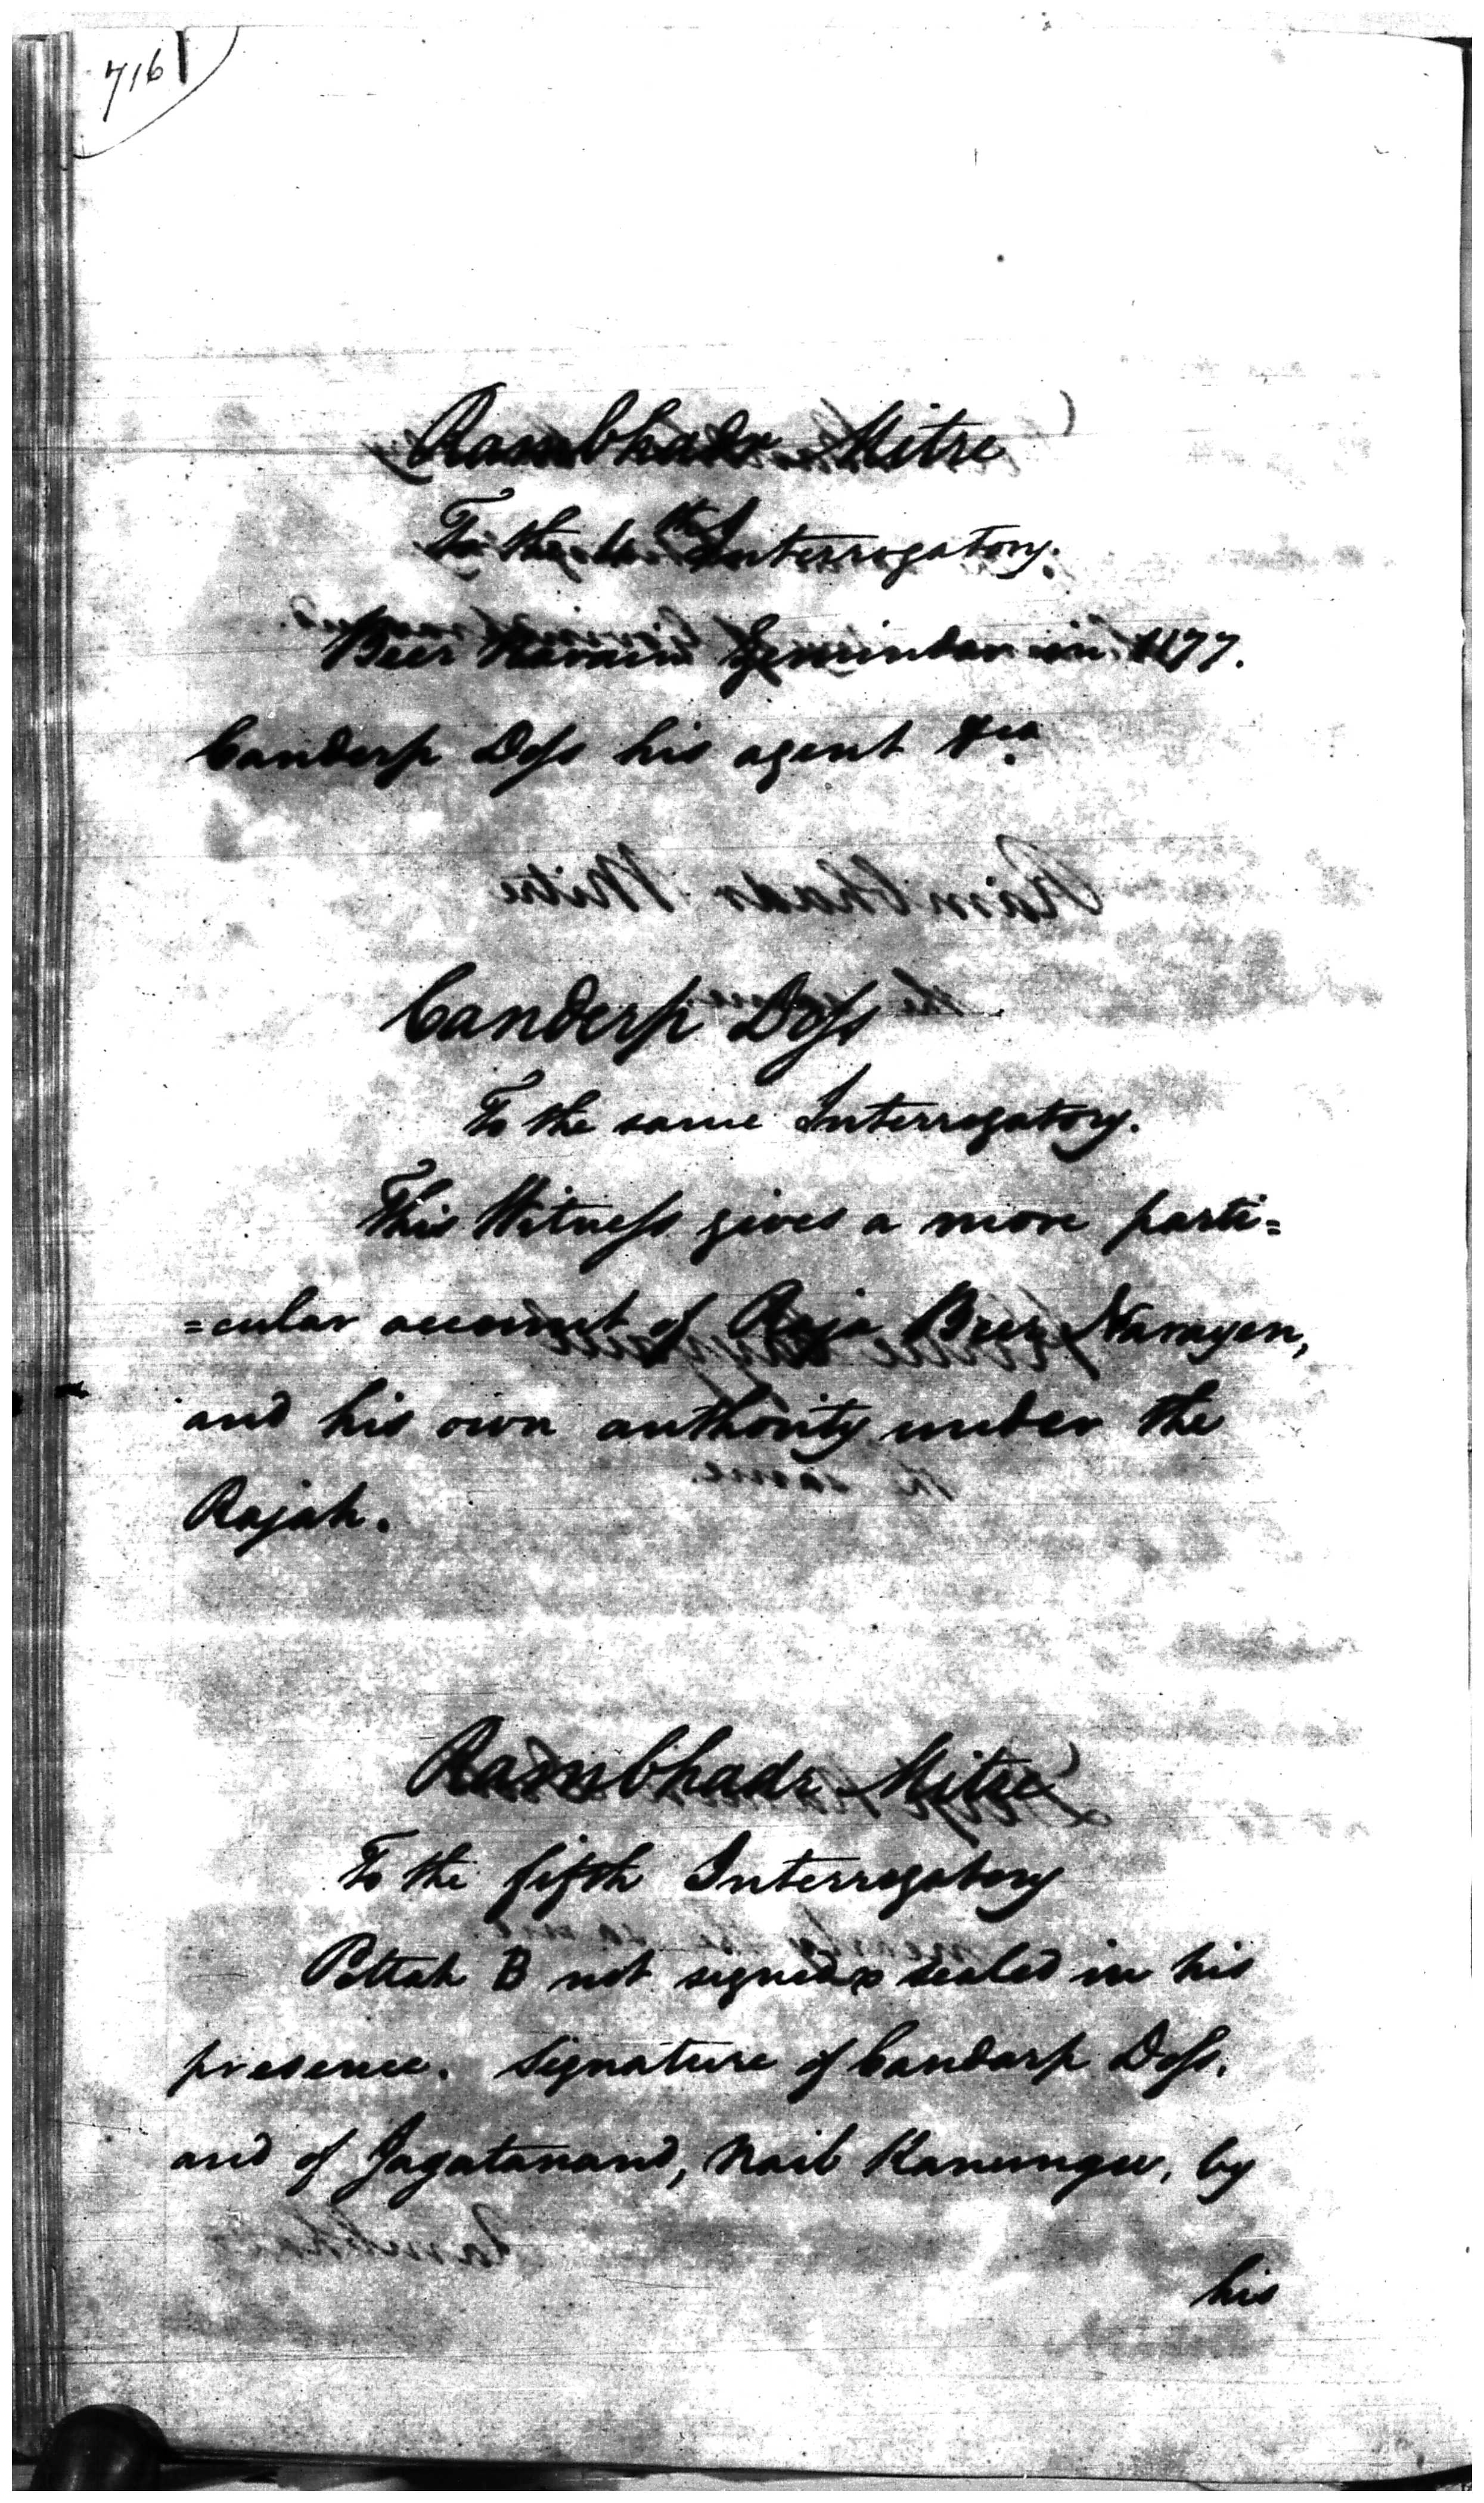 716
Rambhadr Mitre
To the 4th Interrogatory.
Beer Narain Zemindar in 1177.
Canderp Doss his agent &ca
Canderp Doss
To the same Interrogatory.
This Witness gives a more parti=
=cular account of Raja Beer Narayen,
and his own authority under the
Rajah.
Rambhadr Mitre
To the fifth Interrogatory
Pottah B not signed or sealed in his
presence. Signature of Candarp Doss,
and of Jagatanand, Naib Kanungu, by
his